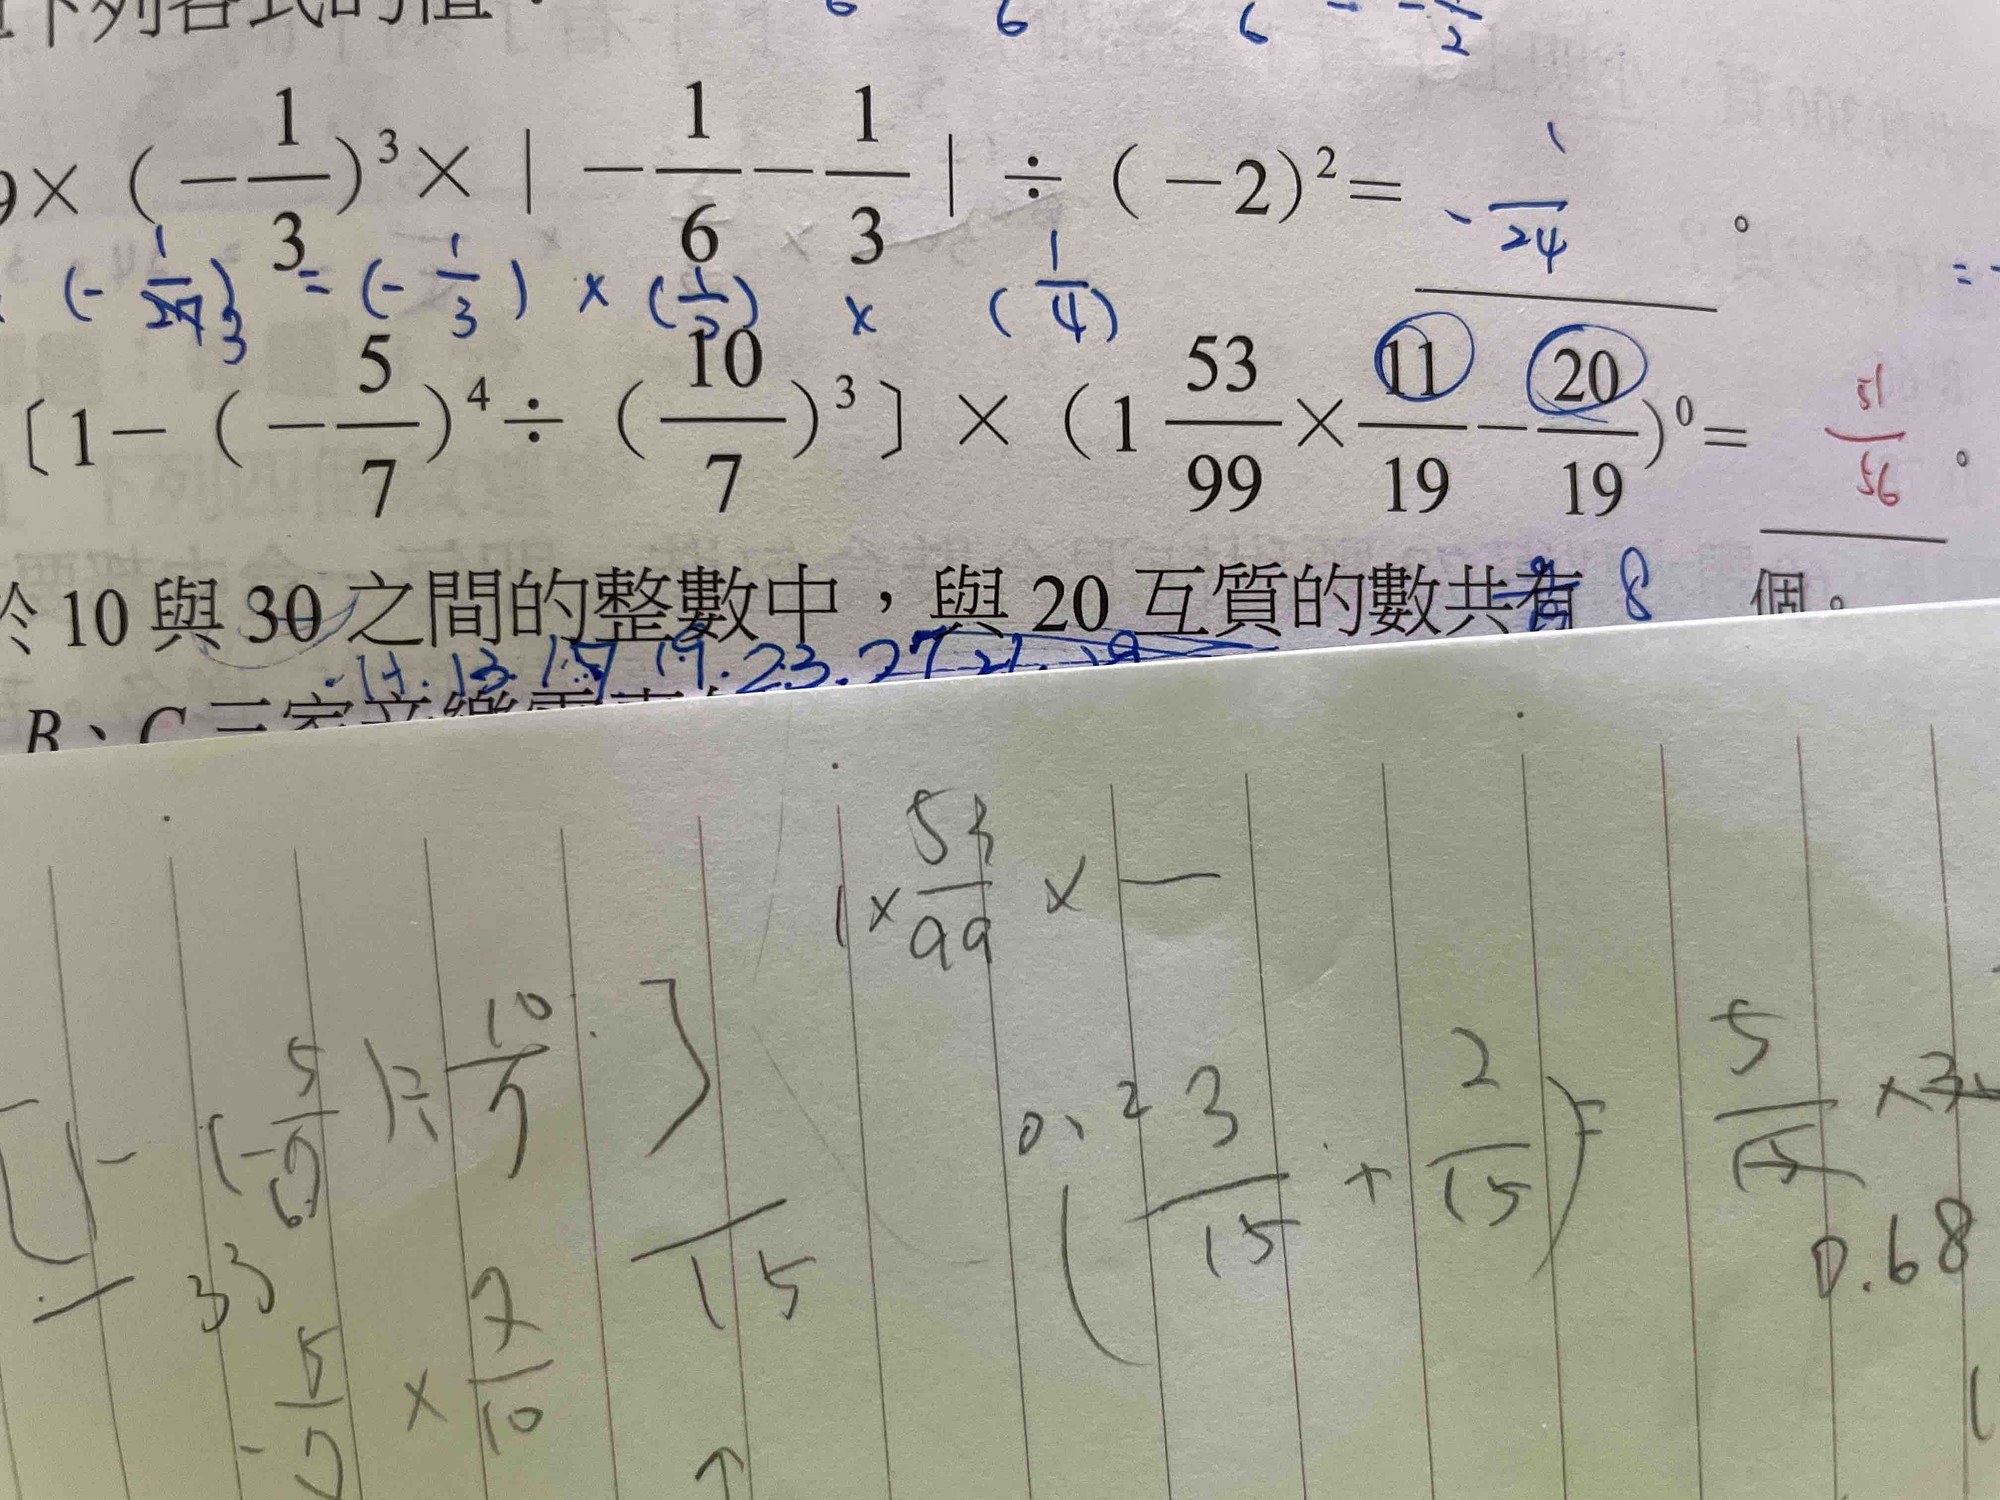 下列各式的值：
6 6 6 = -1/2
9×(-1/3)³×|-1/6-1/3|÷(-2)²= -1/24 。
(-1/27) 3 = (-1/3) × (1/2) × (1/4)
〔1-(-5/7)⁴÷(10/7)³〕×(1 53/99×11/19-20/19)⁰= 51/56 。
於 10 與 30 之間的整數中，與 20 互質的數共有 8 個。
11. 13. 17 19. 23. 27 21. 29
B、C 三家音樂
1×53/99 ×
[1-(-5/7)÷10/7]
0.2
(3/15+2/15)= 5/15 ×
33
/15
0.68
-5/7 × 7/10
↑